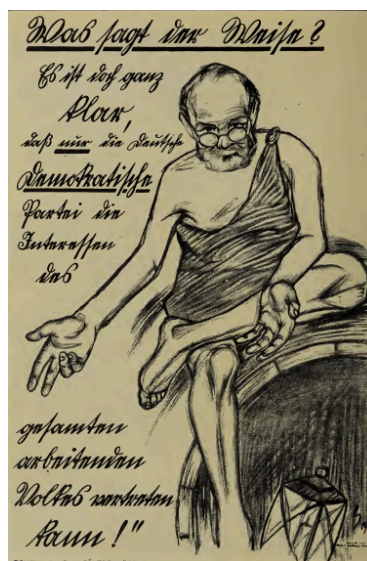 Was sagt der Weise?
Es ist doch ganz
klar,
daß nur die Deutsche
Demokratische
Partei die
Interessen
des
gesamten
arbeitenden
Volkes vertreten
kann!"